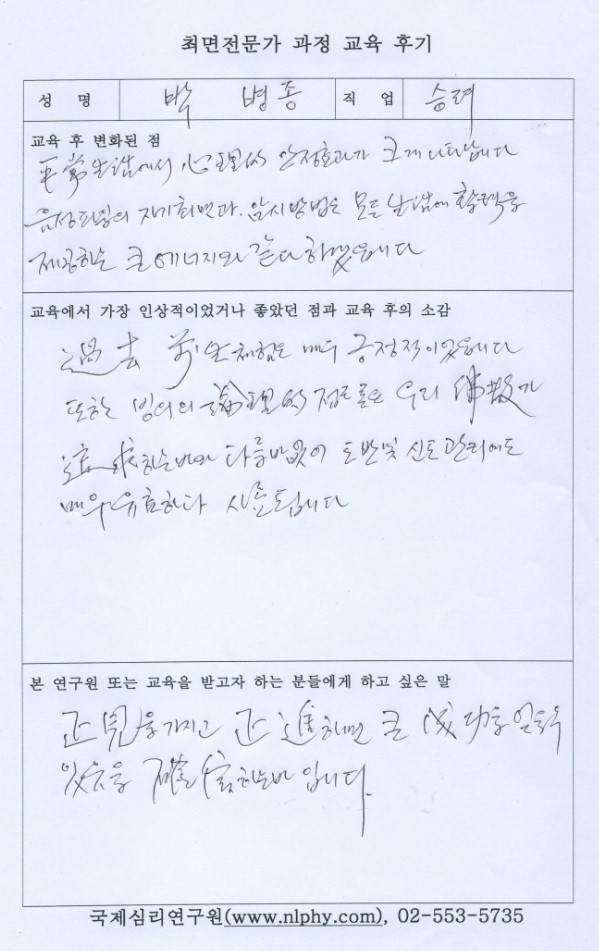 최면전문가 과정 교육 후기
성 명 박 병 종 직 업 승려
교육 후 변화된 점
平常生活에서 心理的 안정효과가 크게 나타납니다
자기최면과 암시방법은 모든 生活에 활력을
제공하는 큰 에너지와 같다 하겠읍니다
교육에서 가장 인상적이었거나 좋았던 점과 교육 후의 소감
過去 前生체험은 매우 긍정적이었읍니다
또한 빙의의 論理的 접근론은 우리 佛教가
追求하는바와 다름바없어 도반및 신도관리에도
매우 유효하다 사료됩니다
본 연구원 또는 교육을 받고자 하는 분들에게 하고 싶은 말
正見을 가지고 正進하면 큰 成功을 얻을수
있음을 確信하는바 입니다.
국제심리연구원(www.nlphy.com), 02-553-5735